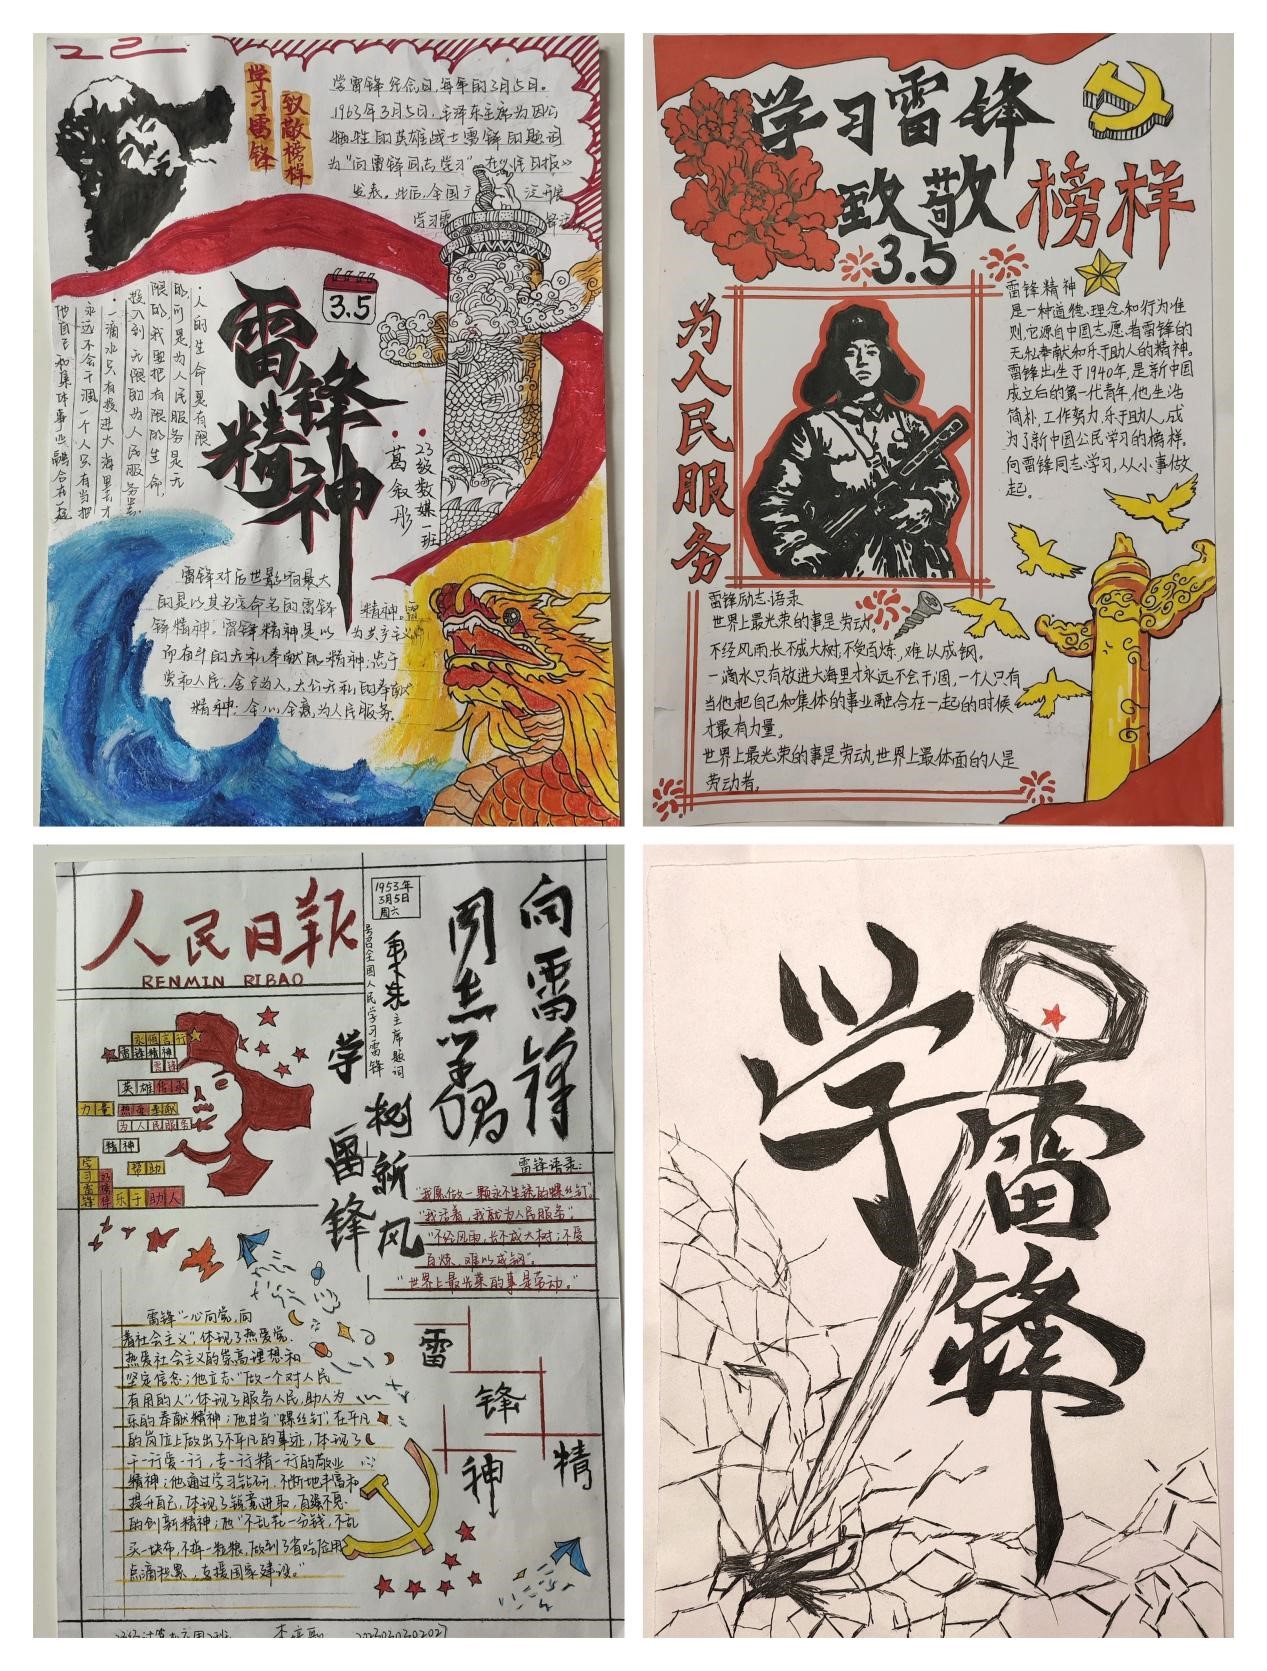 学习雷锋
致敬榜样
学雷锋纪念日,每年的3月5日。
1963年3月5日,毛泽东主席为因公
牺牲的英雄战士雷锋的题词
为“向雷锋同志学习”在《人民日报》
发表。此后,全国
学习雷
3.5
雷锋
精神
·人的生命是有限
的,可是为人民服务是无
限的,我要把有限的生命,
投入到无限的为人民服务
·一滴水只有放进大海里去才
永远不会干涸一个人只有当把
他自己和集体事业融合在一起
23级数媒一班
葛叙彤
雷锋对后世影响最大
的是以其名字命名的雷锋精神。雷
锋精神。雷锋精神是以为共产主义
而奋斗的无私奉献的精神;忠于
党和人民,舍己为人,大公无私的奉献
精神;全心全意为人民服务
学习雷锋
致敬榜样
3.5
为人民服务
雷锋精神
是一种道德、理念和行为准
则,它源自中国志愿者雷锋的
无私奉献和乐于助人的精神。
雷锋出生于1940年,是新中国
成立后的第一代青年,他生活
简朴,工作努力,乐于助人,成
为了新中国公民学习的榜样。
向雷锋同志学习,从小事做
起。
雷锋励志语录
世界上最光荣的事是劳动。
不经风雨,长不成大树,不受百炼,难以成钢。
一滴水只有放进大海里才永远不会干涸,一个人只有
当他把自己和集体的事业融合在一起的时候
才最有力量。
世界上最光荣的事是劳动,世界上最体面的人是
劳动者。
人民日报
RENMIN RIBAO
1953年
3月5日
周六
号召全国人民学习雷锋
主席题词
向雷锋
同志学习
学雷锋
树新风
永恒言行
雷锋精神
雷锋
英雄传承
力量
热爱奉献
为人民服务
精神
帮助
学习雷锋
乐于助人
雷锋语录:
“我愿做一颗永不生锈的螺丝钉”
“我活着,我就为人民服务”
“不经风雨,长不成大树;不受
百炼,难以成钢”
“世界上最光荣的事是劳动。”
雷锋“一心向党,向
着社会主义”体现了热爱党、
热爱社会主义的崇高理想和
坚定信念;他立志“做一个对人民
有用的人”,体现了服务人民,助人为
乐的奉献精神;他甘当“螺丝钉”,在平凡
的岗位上做出了不平凡的事迹,体现了
干一行爱一行,专一行精一行的敬业
精神;他通过学习钻研,不断地丰富和
提升自己,体现了锐意进取,自强不息
的创新精神;他“不乱花一分钱,不乱
买一块布,不掉一粒粮,做到了省吃俭用
点滴积累,支援国家建设。”
雷
锋
精
神
学
雷
锋